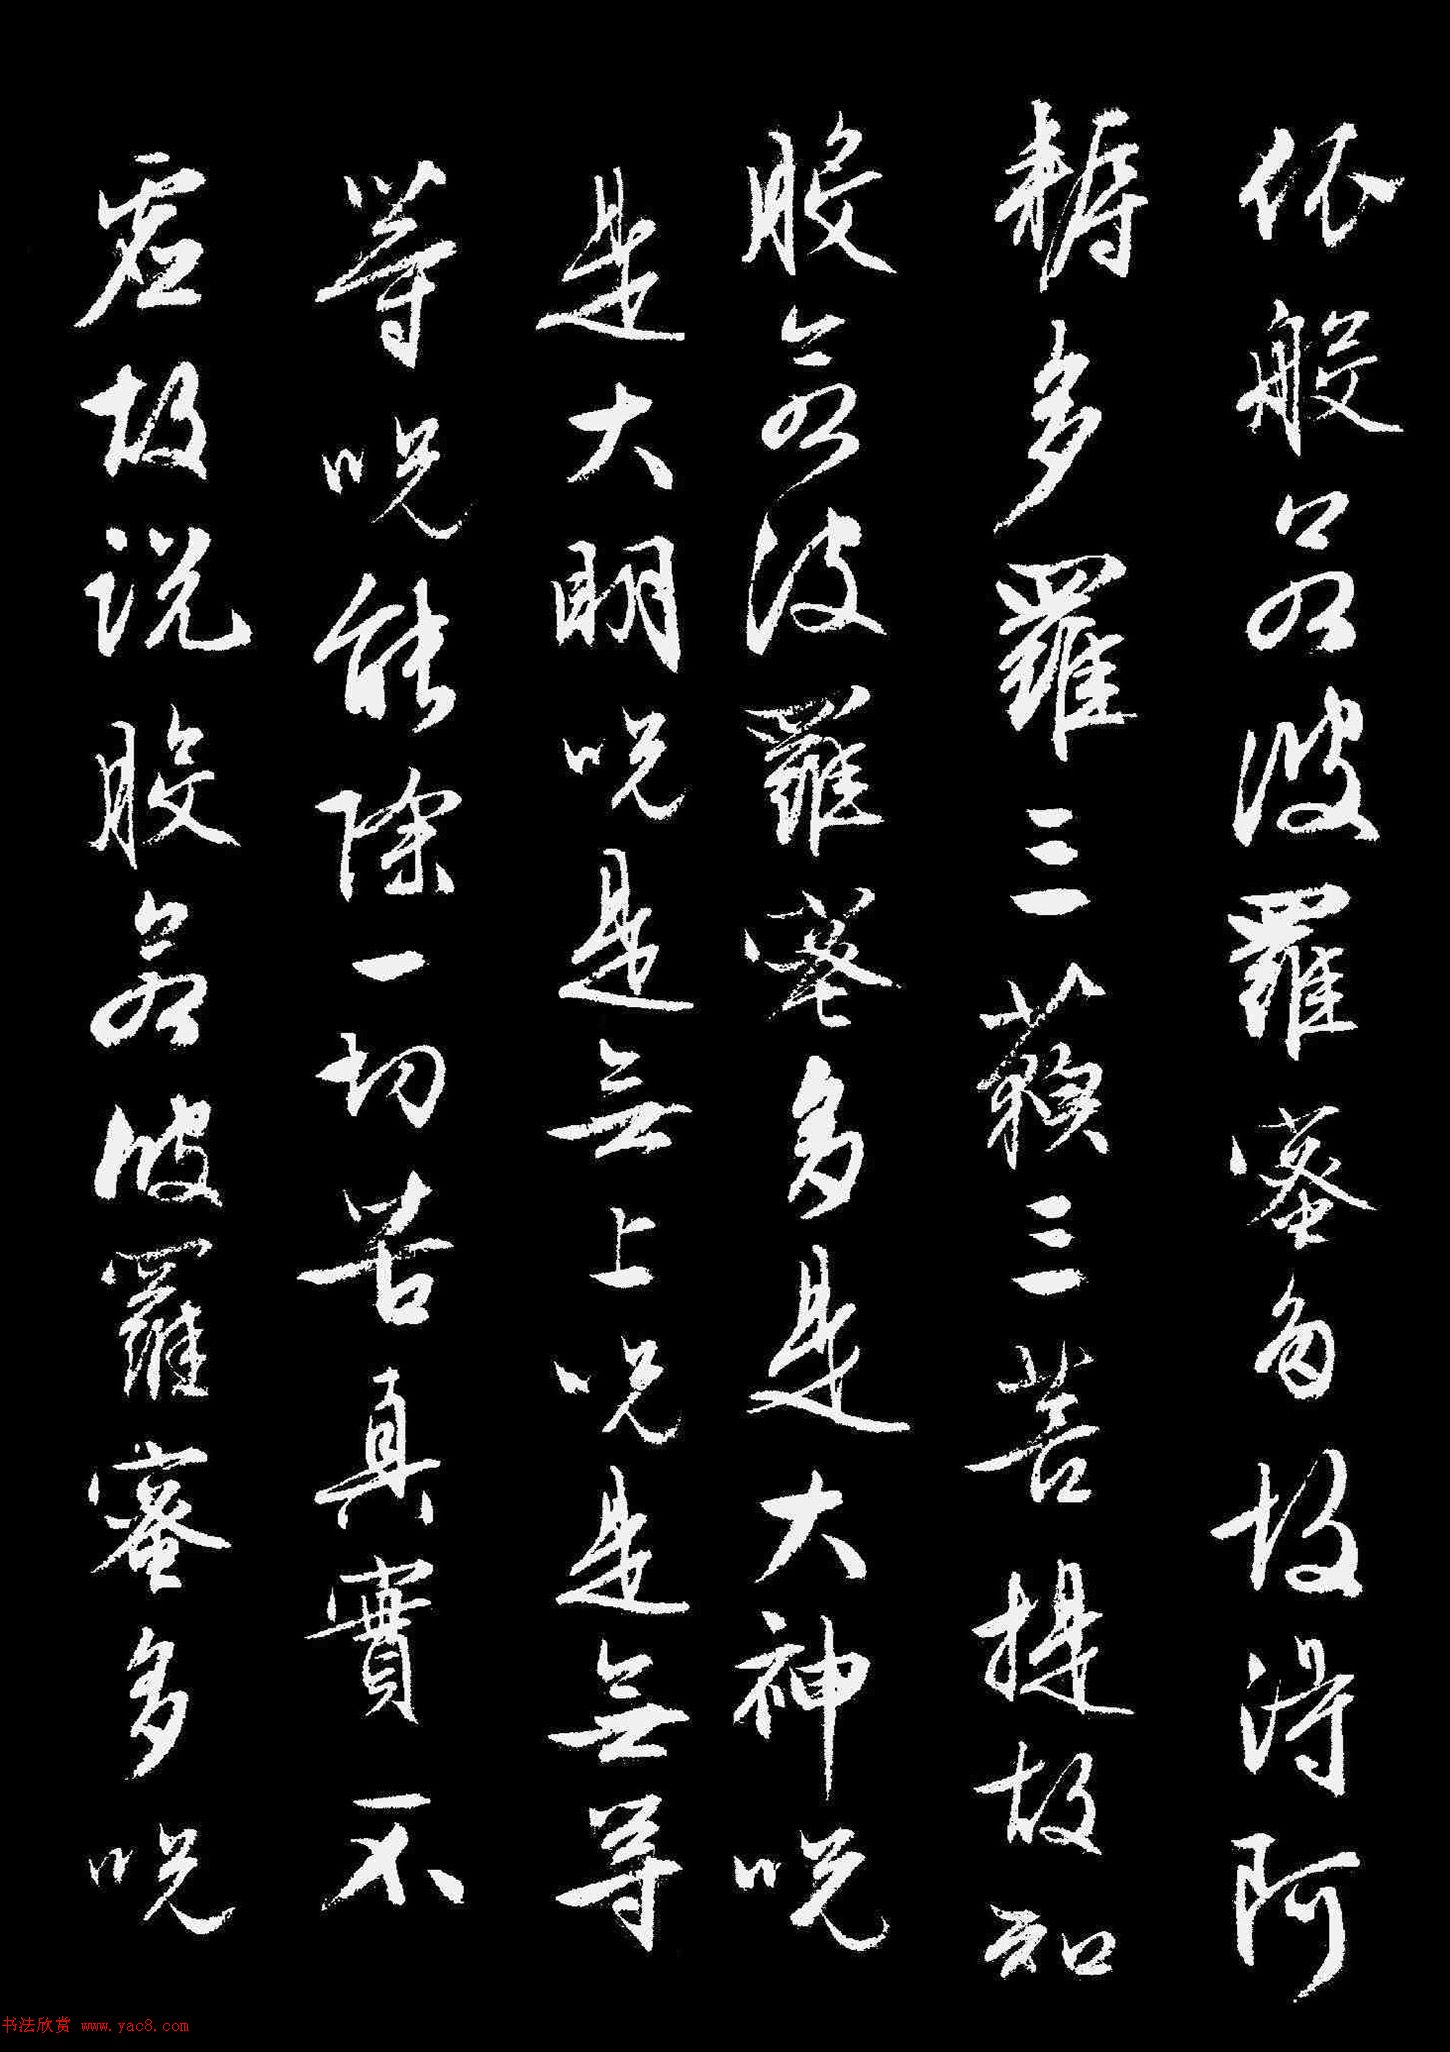 依般若波羅蜜多故得阿
耨多羅三藐三菩提故知
般若波羅蜜多是大神咒
是大明咒是無上咒是無等
等咒能除一切苦真實不
虛故说般若波羅蜜多咒
书法欣赏 www.yac8.com